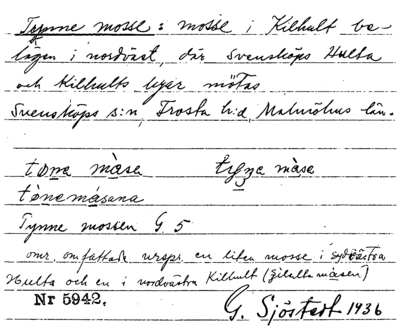 Tynne mosse: mosse i Kilhult be-
lägen i nordväst, där Svensköps Hulta
och Kilhults byar mötas
Svensköps s:n, Frosta h:d, Malmöhus län.
tøna måsa tyna måsa
tønemåsana
Tynne mossen G. 5
omr. omfattade urspr. en liten mosse i sydvästra
Hulta och en i nordvästra Kilhult (måsen)
Nr 5942. G. Sjöstedt 1936